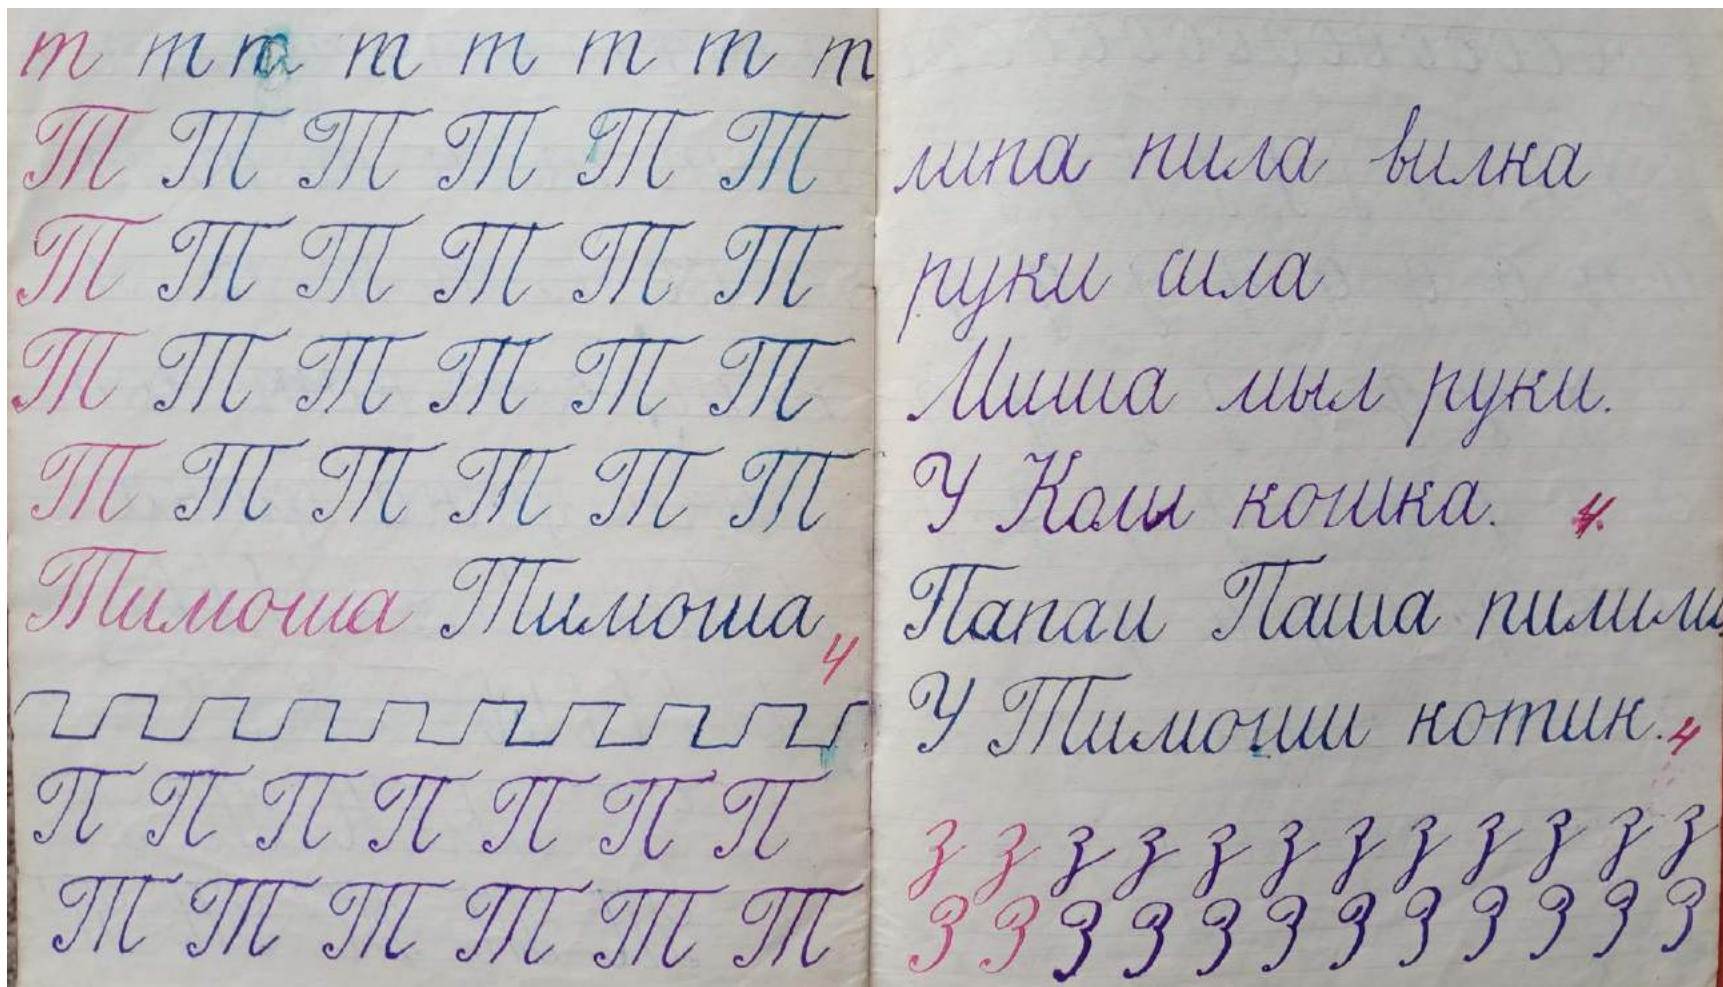 т т т т т т т т
Т Т Т Т Т Т
Т Т Т Т Т Т
Т Т Т Т Т Т
Т Т Т Т Т Т
Тимоша Тимоша
4
П П П П П П П
Т Т Т Т Т Т
липа пила вилка
руки шла
Миша мыл руки.
У Коли кошка. 4.
Папа и Паша пилили.
У Тимоши котик. 4
з з з з з з з з з з з з
З З З З З З З З З З З З